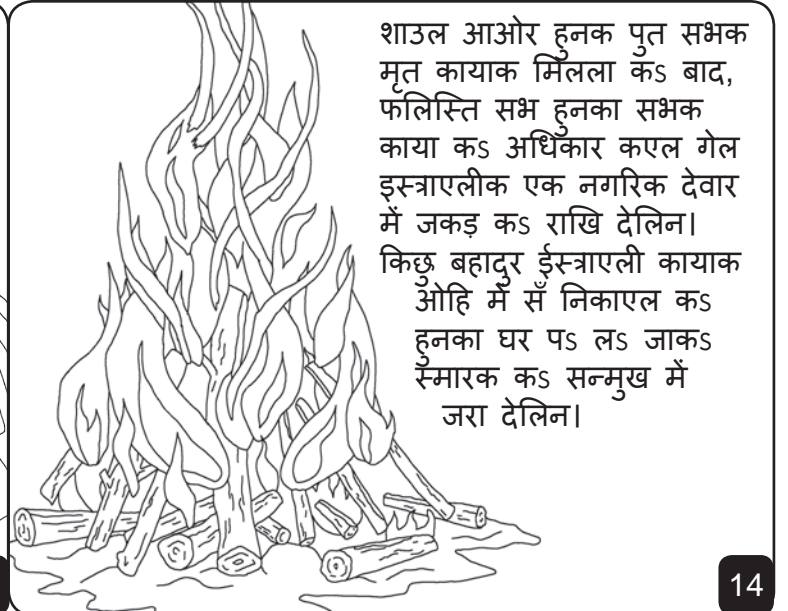 शाउल आओर हुनक पुत सभक
मृत कायाक मिलला कs बाद,
फलिस्ति सभ हुनका सभक
काया कs अधिकार कएल गेल
इस्त्राएलीक एक नगरिक देवार
में जकड़ कs राखि देलिन।
किछु बहादुर ईस्त्राएली कायाक
ओहि में सँ निकाएल कs
हुनका घर पs लs जाकs
स्मारक कs सन्मुख में
जरा देलिन।
14